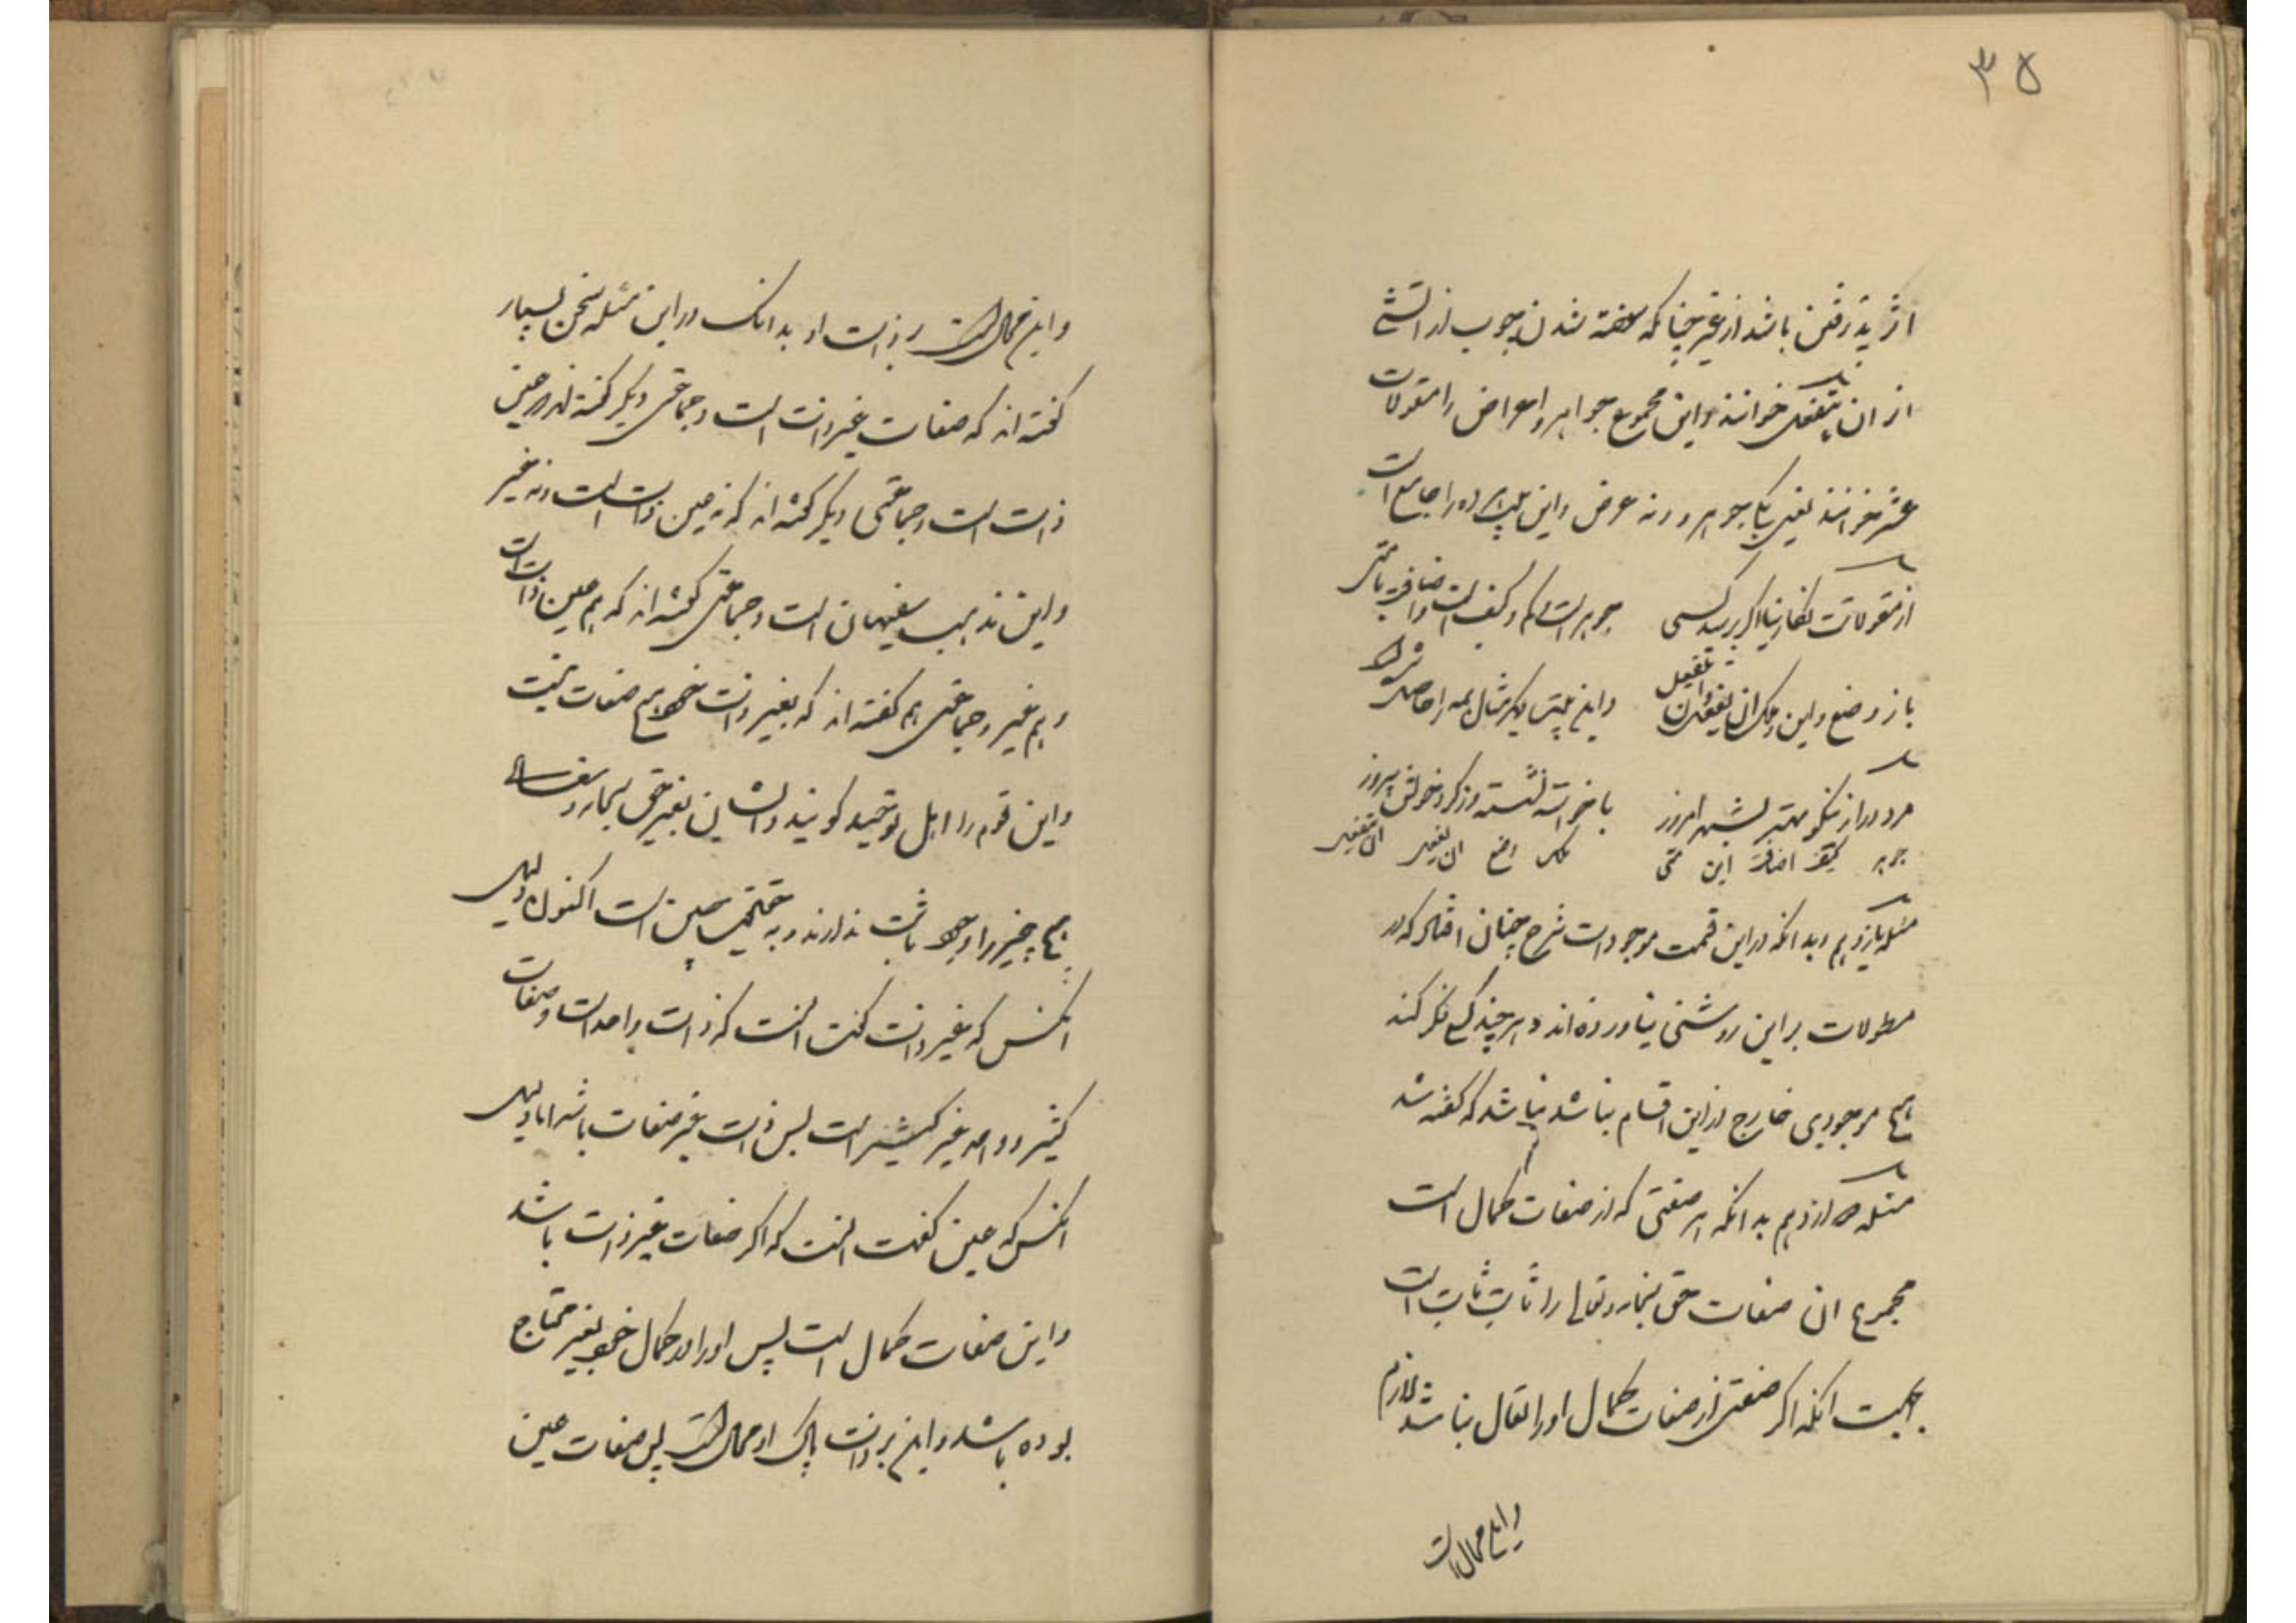 ۳۵
اثر پذیرفتن باشد از غیر چنانکه سوخته شدن چوب از آتش
از ان ینفعل خوانند و این مجموع جواهر و اعراض را مقولات
عشر خوانند یعنی یکی جوهر و نه عرض و این بیت هر ده را جامع است
از مقولات کفار بنیا اگر پرسد کسی جوهر است و کم و کیف است و اضافه با متی
باز وضع و این و ملک ان یفعل ان ینفعل و این بیت دیگر مثال همه را حاصل شده است
مرد دراز نیکو مهتر بشهر امروز با خواسته نشسته وز کرد خویش پیروز
جوهر کیف اضافه این متی ملک وضع ان یفعل ان ینفعل
مسئله یازدهم بدانکه در این قسمت موجودات شرح چنان افتاد که در
مطولات بر این روشنی نیاورده اند و هر چند کسی فکر کند
هیچ موجودی خارج از این اقسام نباشد نباشد که گفته شد
مسئله دوازدهم بدانکه هر صفتی که از صفات کمال است
مجموع ان صفات حق سبحانه و تعالی را ثابت ثابت است
بجهت آنکه اگر صفتی از صفات کمال او را بفعل نباشد لازم
و این محال است
و این محال است بر ذات او بدانک در این مسئله سخن بسیار
گفته اند که صفات غیر ذات است و جماعتی دیگر گفته اند عین
ذات است و جماعتی دیگر گفته اند که نه عین ذات است و نه غیر
و این مذهب سفیهان است و جماعتی گفته اند که هم عین ذات است
و هم غیر و جماعتی هم گفته اند که بغیر ذات خود هیچ صفات نیست
و این قوم را اهل توحید گویند و ایشان بغیر حق سبحانه و تعالی
هیچ چیز را وجود ثابت ندارند و به حقیقت همین است اکنون دلیل
انکس که غیر ذات گفت انست که ذات واحد است و صفات
کثیر و واحد غیر کثیر است پس ذات غیر صفات باشد اما دلیل
انکس که عین گفت انست که اگر صفات غیر ذات باشد
و این صفات کمال است پس او را در کمال خود بغیر محتاج
بوده باشد و این بر ذات پاک او محال است پس صفات عین